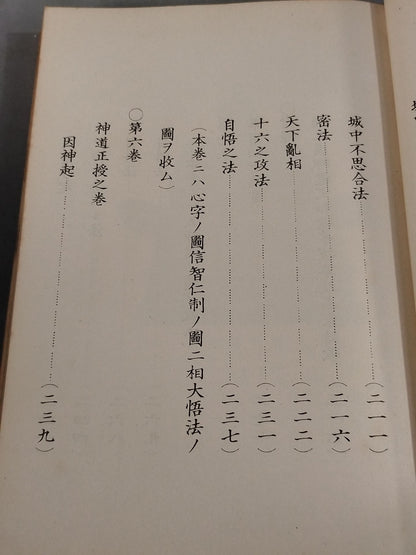 城中不思合法……………………(二一一)
密法……………………(二一六)
天下亂相……………………(二二二)
十六之攻法……………………(二三一)
自悟之法……………………(二三七)
(本巻ニハ心字ノ圖信智仁制ノ圖二相大悟法ノ
圖ヲ收ム)
〇第六巻
神道正授之巻
因神起……………………(二三九)